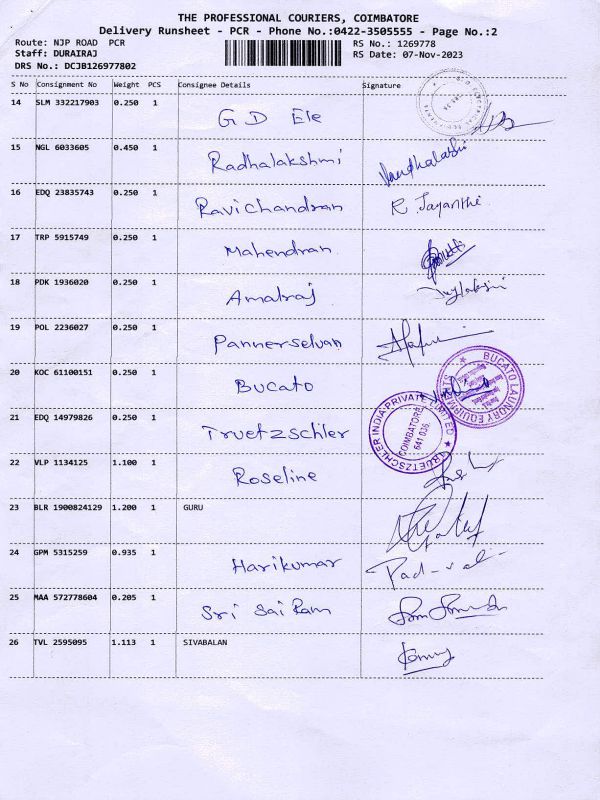 THE PROFESSIONAL COURIERS, COIMBATORE
Delivery Runsheet - PCR - Phone No.:0422-3505555 - Page No.:2
Route: NJP ROAD PCR
RS No.: 1269778
Staff: DURAIRAJ
RS Date: 07-Nov-2023
DRS No.: DCJB126977802
S No Consignment No Weight PCS Consignee Details Signature
14 SLM 332217903 0.250 1 G D Ele
15 NGL 6033605 0.450 1 Radhalakshmi
16 EDQ 23835743 0.250 1 Ravichandran R. Jayanthi
17 TRP 5915749 0.250 1 Mahendran
18 PDK 1936020 0.250 1 Amalraj
19 POL 2236027 0.250 1 Pannerselvan
20 KOC 61100151 0.250 1 Bucato
BUCATO LAUNDRY EQUIPMENTS
21 EDQ 14979826 0.250 1 Truetzschler
TRUETZSCHLER INDIA PRIVATE LIMITED
COIMBATORE
641 035.
22 VLP 1134125 1.100 1 Roseline
23 BLR 1900824129 1.200 1 GURU
24 GPM 5315259 0.935 1 Harikumar
25 MAA 572778604 0.205 1 Sri Sai Ram
26 TVL 2595095 1.113 1 SIVABALAN